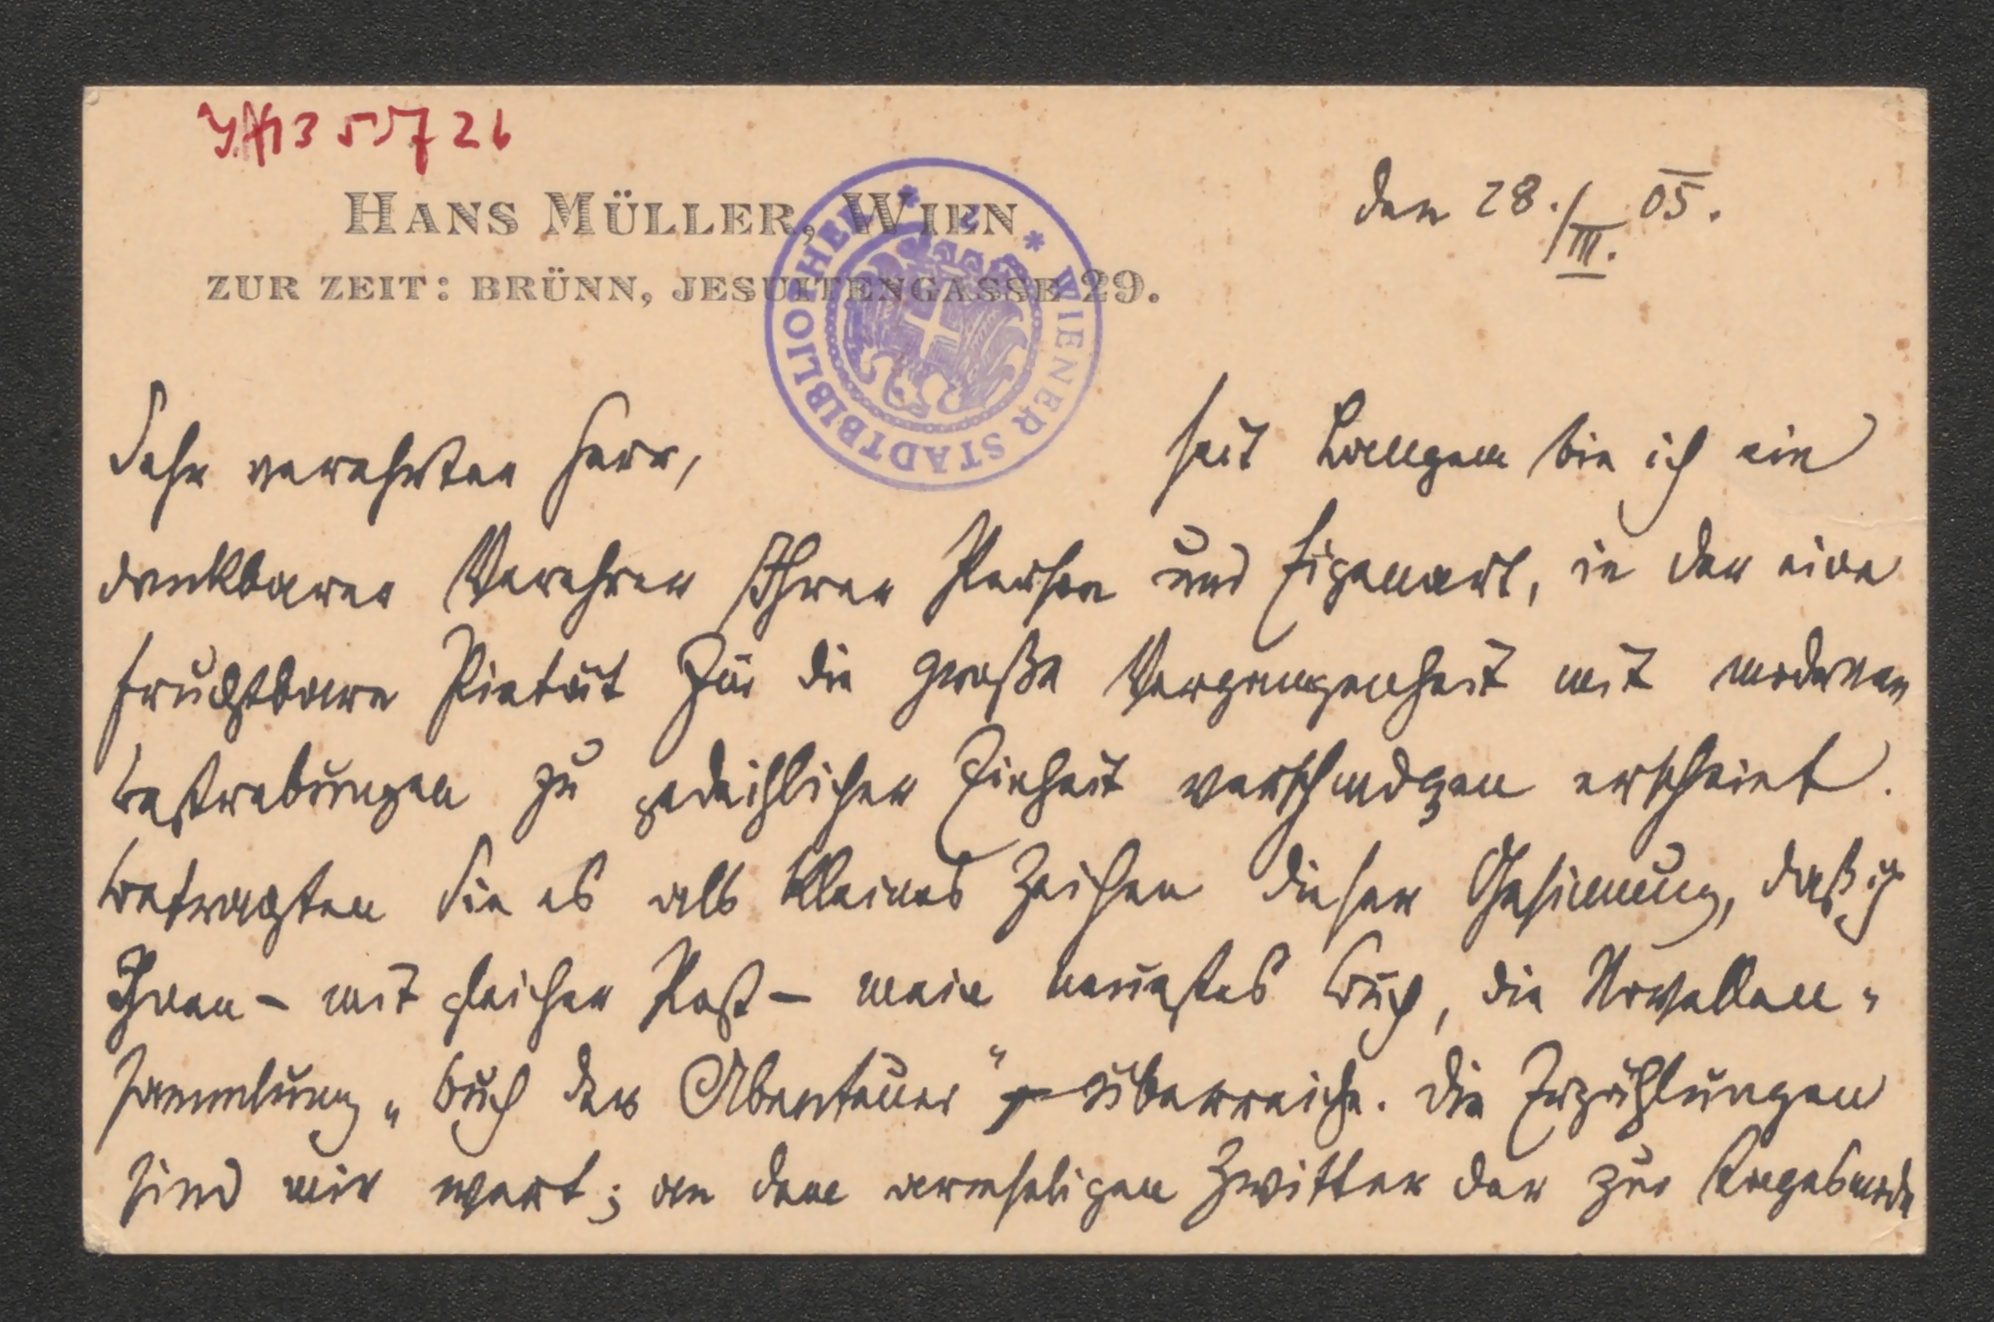 HANS MÜLLER, WIEN
ZUR ZEIT: BRÜNN, JESUITENGASSE 29.
WIENER STADTBIBLIOTHEK
den 28./III. 05.
Sehr verehrter Herr, seit Langem bin ich ein
dankbarer Verehrer Ihrer Person und Eigenart, in der eine
fruchtbare Pietät für die große Vergangenheit mit modernen
Bestrebungen zu gedeihlicher Einheit verschmolzen erscheint.
Betrachten Sie es als kleines Zeichen dieser Gesinnung, daß ich
Ihnen – mit gleicher Post – mein neuestes Buch, die Novellen-
sammlung „Buch der Abenteuer" überreiche. Die Erzählungen
sind mir wert; an dem armseligen Zwitter der zur Tagesmode